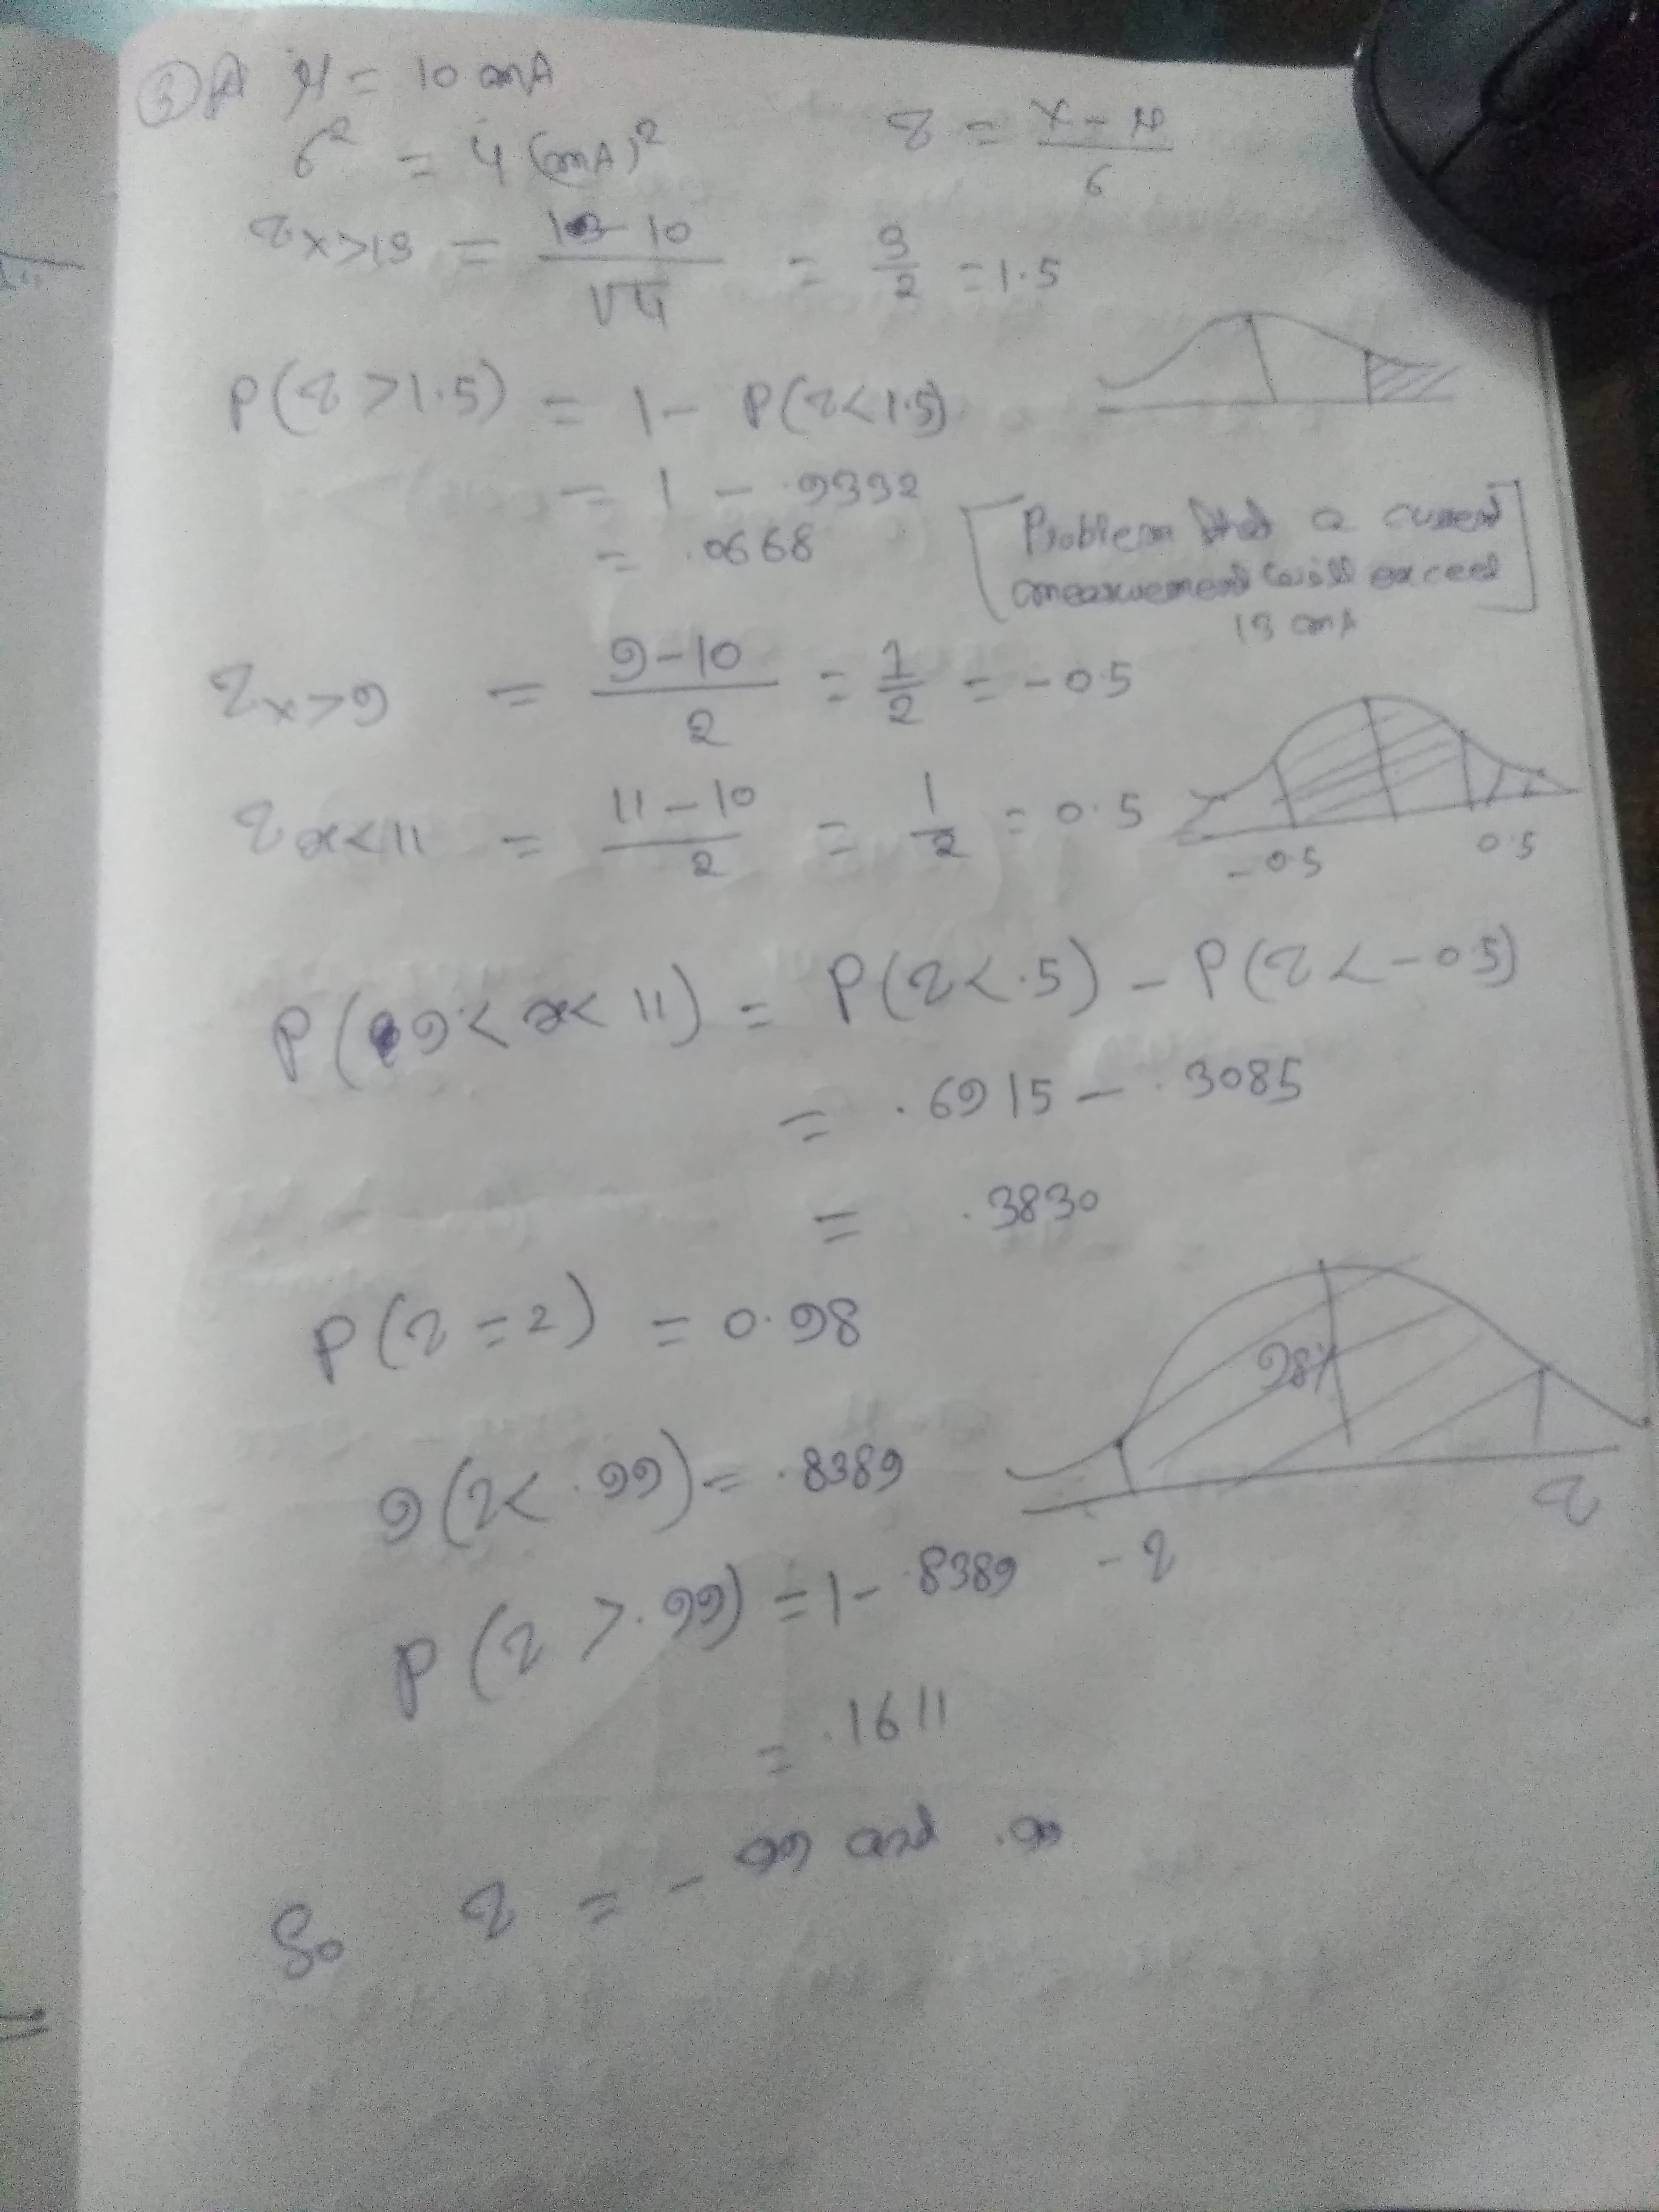 ③ A μ = 10 mA
σ² = 4 (mA)²
z = x - μ / σ
z x>13 = 13 - 10 / √4 = 3/2 = 1.5
P(z > 1.5) = 1 - P(z < 1.5)
= 1 - .9332
= .0668
[Problem that a current
measurement will exceed
13 mA]
z x>9 = 9-10 / 2 = 1/2 = -0.5
z x<11 = 11-10 / 2 = 1/2 = 0.5
-0.5 0.5
P(9 < x < 11) = P(z < .5) - P(z < -0.5)
= .6915 - .3085
= .3830
P(z = 2) = 0.98
98%
P(z < .99) = .8389
-z z
P(z > .99) = 1 - .8389
= .1611
So z = - .99 and